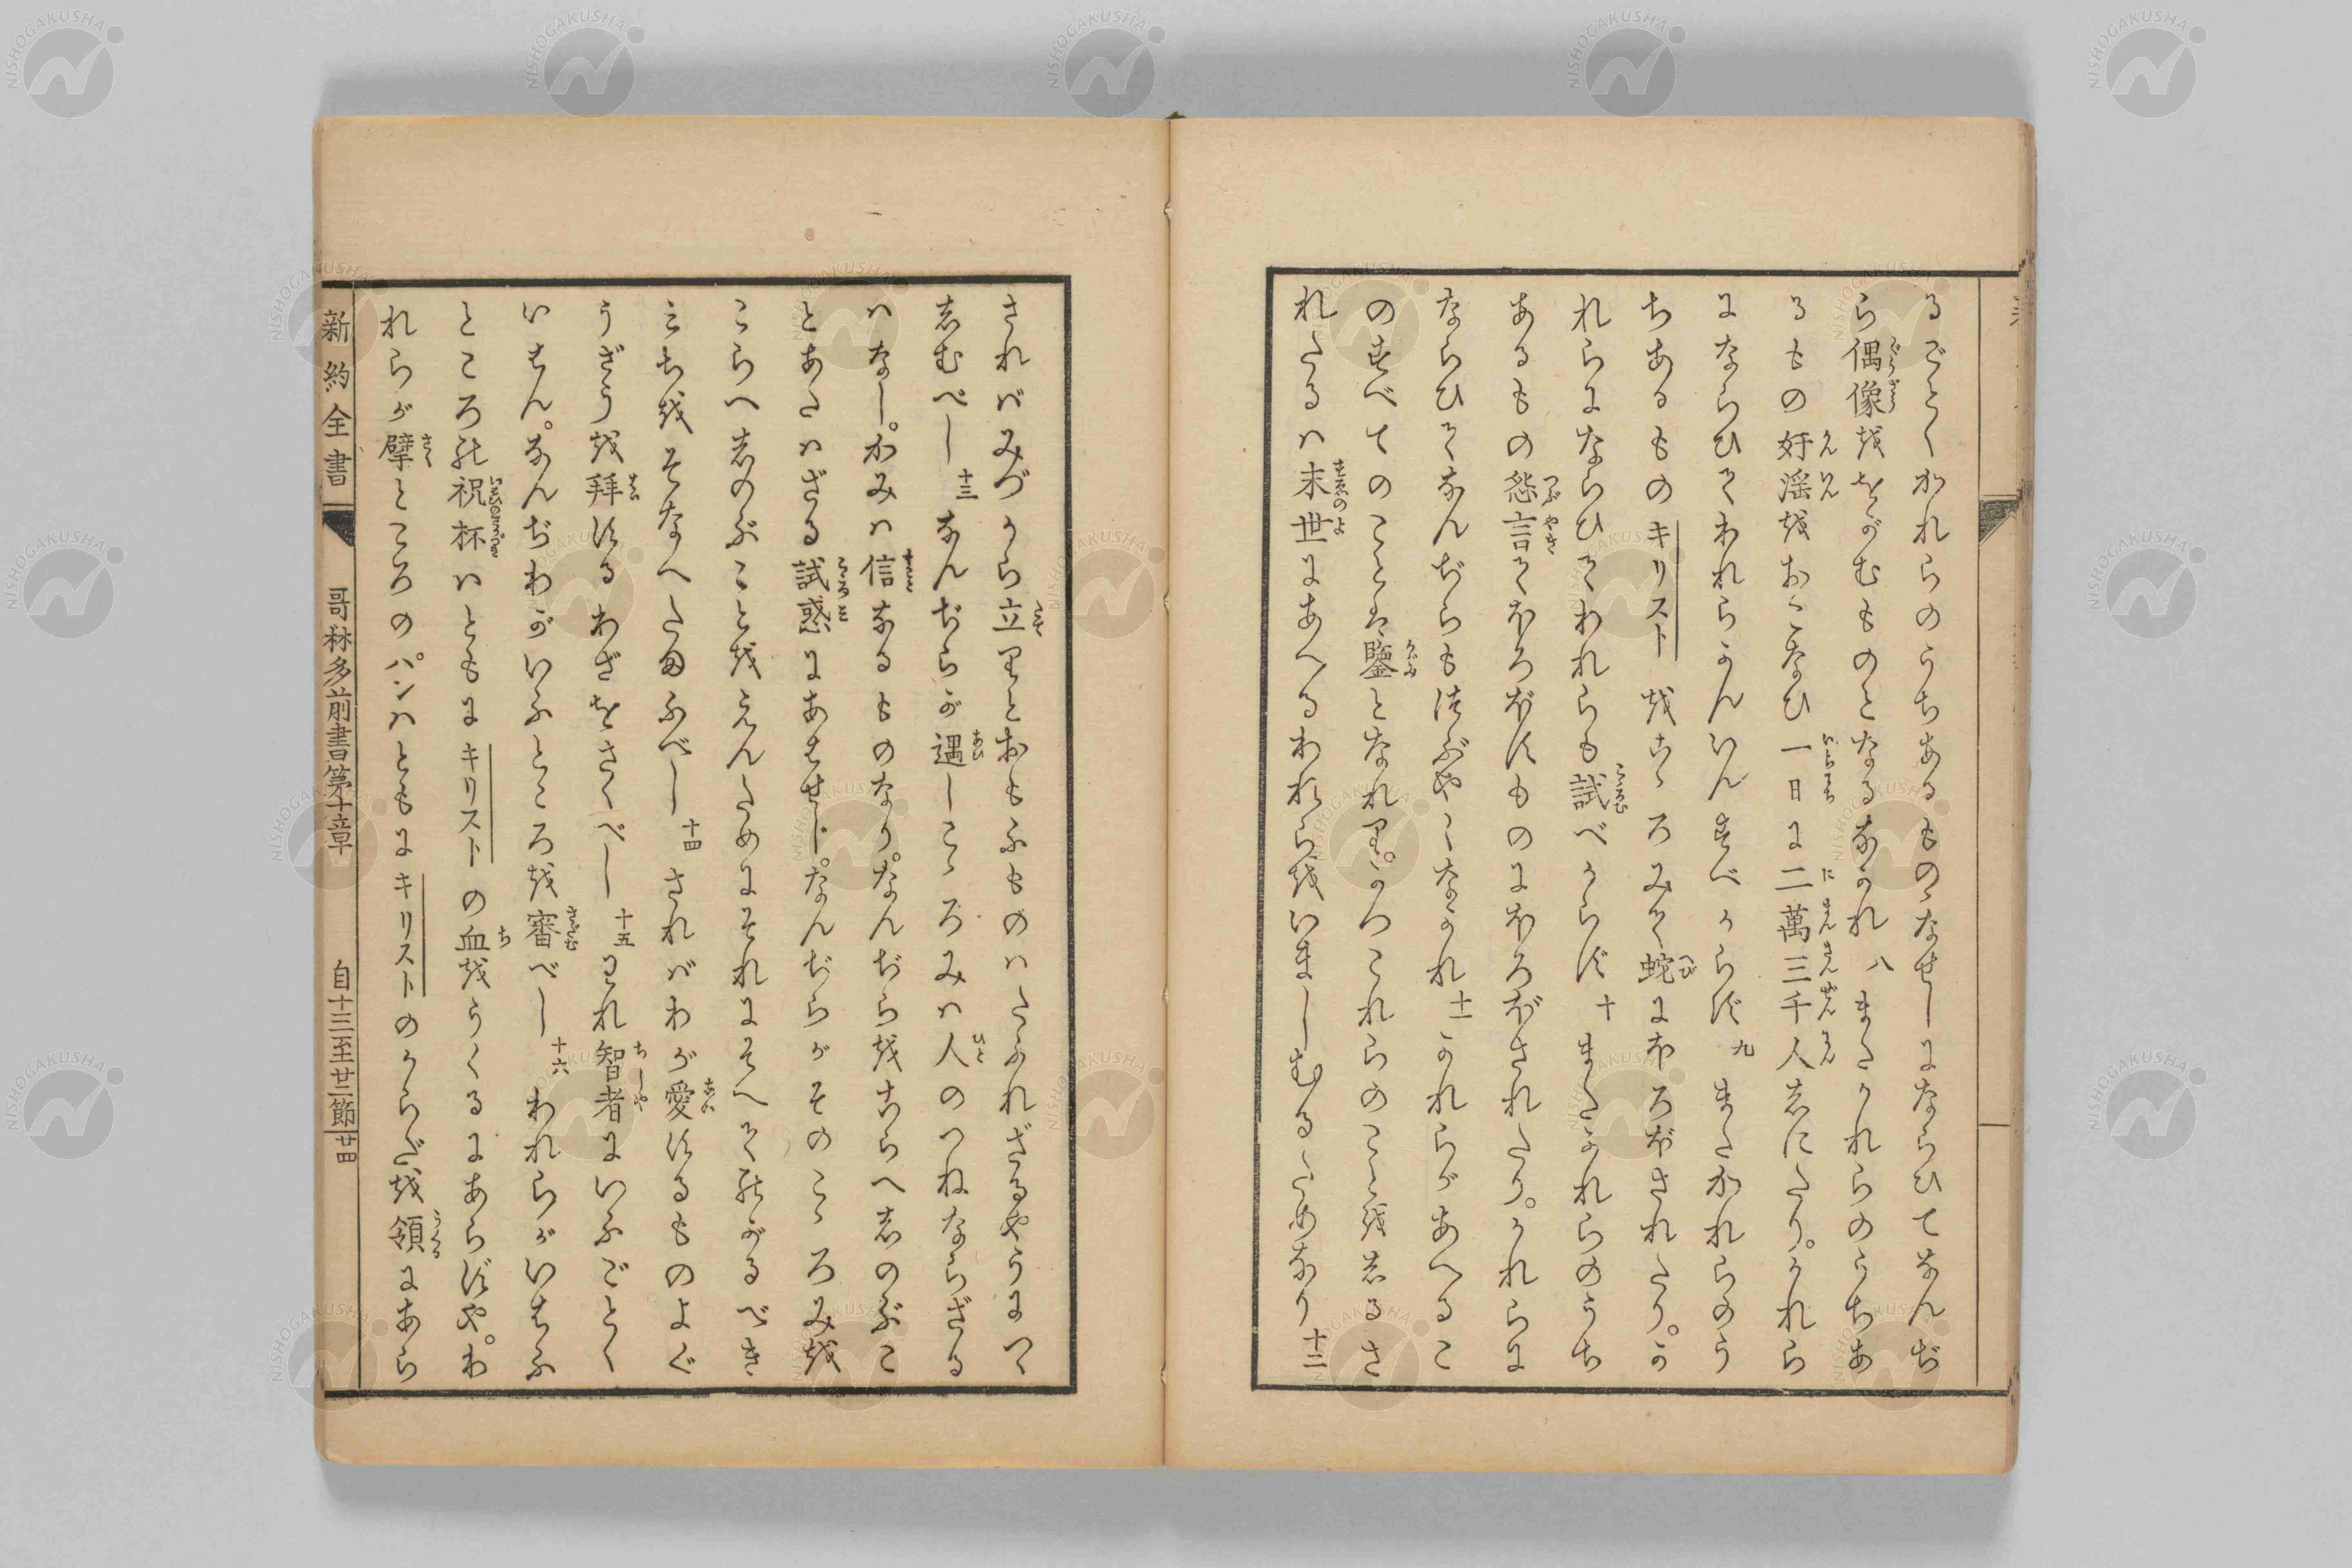 るごとくかれらのうちあるものゝなせしにならひてなんぢ
ら偶像ををがむものとなるなかれ 八 またかれらのうちあ
るもの奸淫をおこなひ一日に二萬三千人志にたり。かれら
にならひてわれらかんいんすべからず 九 またかれらのう
ちあるものキリストをこゝろみて蛇にほろぼされたり。か
れらにならひてわれらも試べからず 十 またかれらのうち
あるもの怨言てほろぼすものにほろぼされたり。かれらに
ならひてなんぢらもつぶやくなかれ 十一 かれらがあへるこ
のすべてのことは鑒となれり。かつこれらのことを志るさ
れたるハ末世にあへるわれらをいましむるためなり 十二
されバみづから立りとおもふものハたふれざるやうにつゝ
志むべし 十三 なんぢらが遇しこゝろみハ人のつねならざる
ハなし。かみハ信なるものなり。なんぢらをこらへ志のぶこ
とあたハざる試惑にあはせじ。なんぢらがそのこゝろみを
こらへ志のぶことをえんためにそれにそへてのがるべき
みちをそなへたまふべし 十四 さればわが愛するものよぐ
うざうを拜するわざをさくべし 十五 われ智者にいふごとく
いはん。なんぢわがいふところを審べし 十六 われらがいはふ
ところの祝杯ハともにキリストの血をうくるにあらずや。わ
れらが擘ところのパンハともにキリストのからだを領にあら
新約全書 哥林多前書第十章 自十三至廿二節 廿四